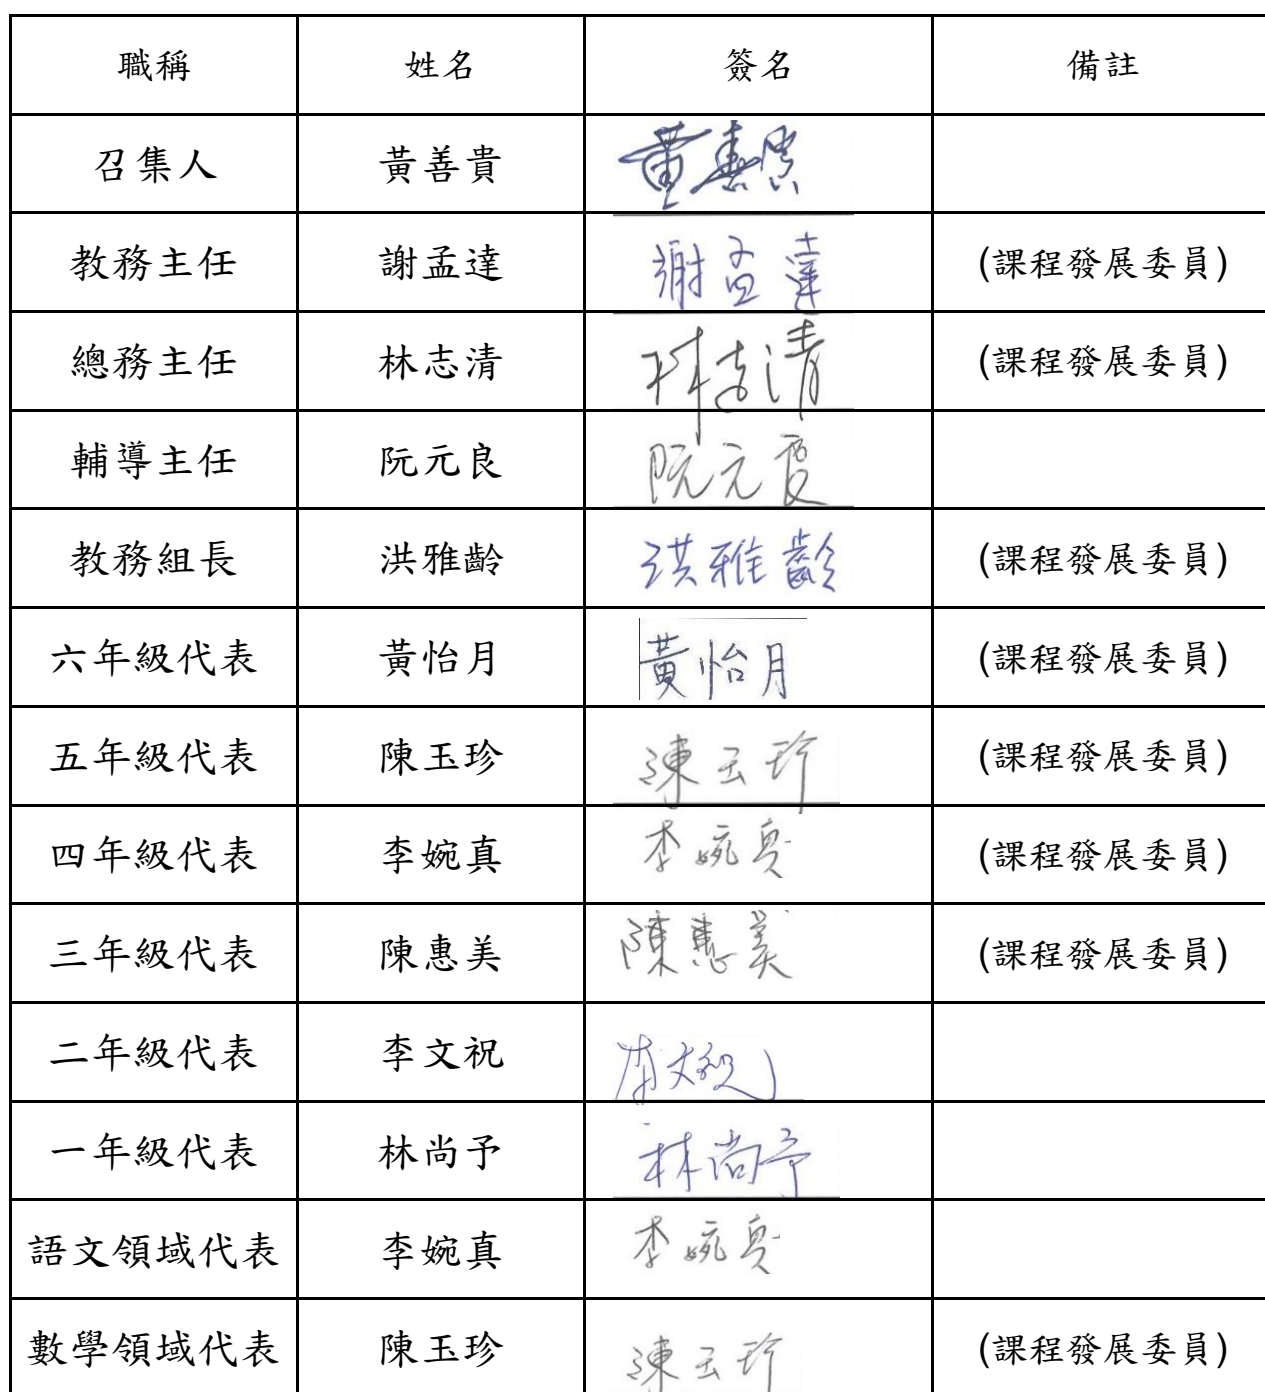 職稱 姓名 簽名 備註
召集人 黃善貴 黃善貴
教務主任 謝孟達 謝孟達 (課程發展委員)
總務主任 林志清 林志清 (課程發展委員)
輔導主任 阮元良 阮元良
教務組長 洪雅齡 洪雅齡 (課程發展委員)
六年級代表 黃怡月 黃怡月 (課程發展委員)
五年級代表 陳玉珍 陳玉珍 (課程發展委員)
四年級代表 李婉真 李婉真 (課程發展委員)
三年級代表 陳惠美 陳惠美 (課程發展委員)
二年級代表 李文祝 李文祝
一年級代表 林尚予 林尚予
語文領域代表 李婉真 李婉真
數學領域代表 陳玉珍 陳玉珍 (課程發展委員)